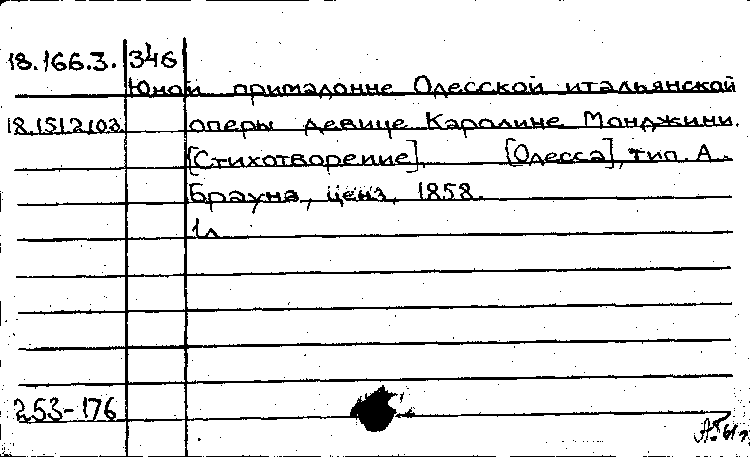 18.166.3. 346
Юной примадонне Одесской итальянской
18.151.2.103 оперы девице Каролине Монджини.
[Стихотворение]. [Одесса], тип. А.
Брауна, ценз. 1858.
1л.
253-176